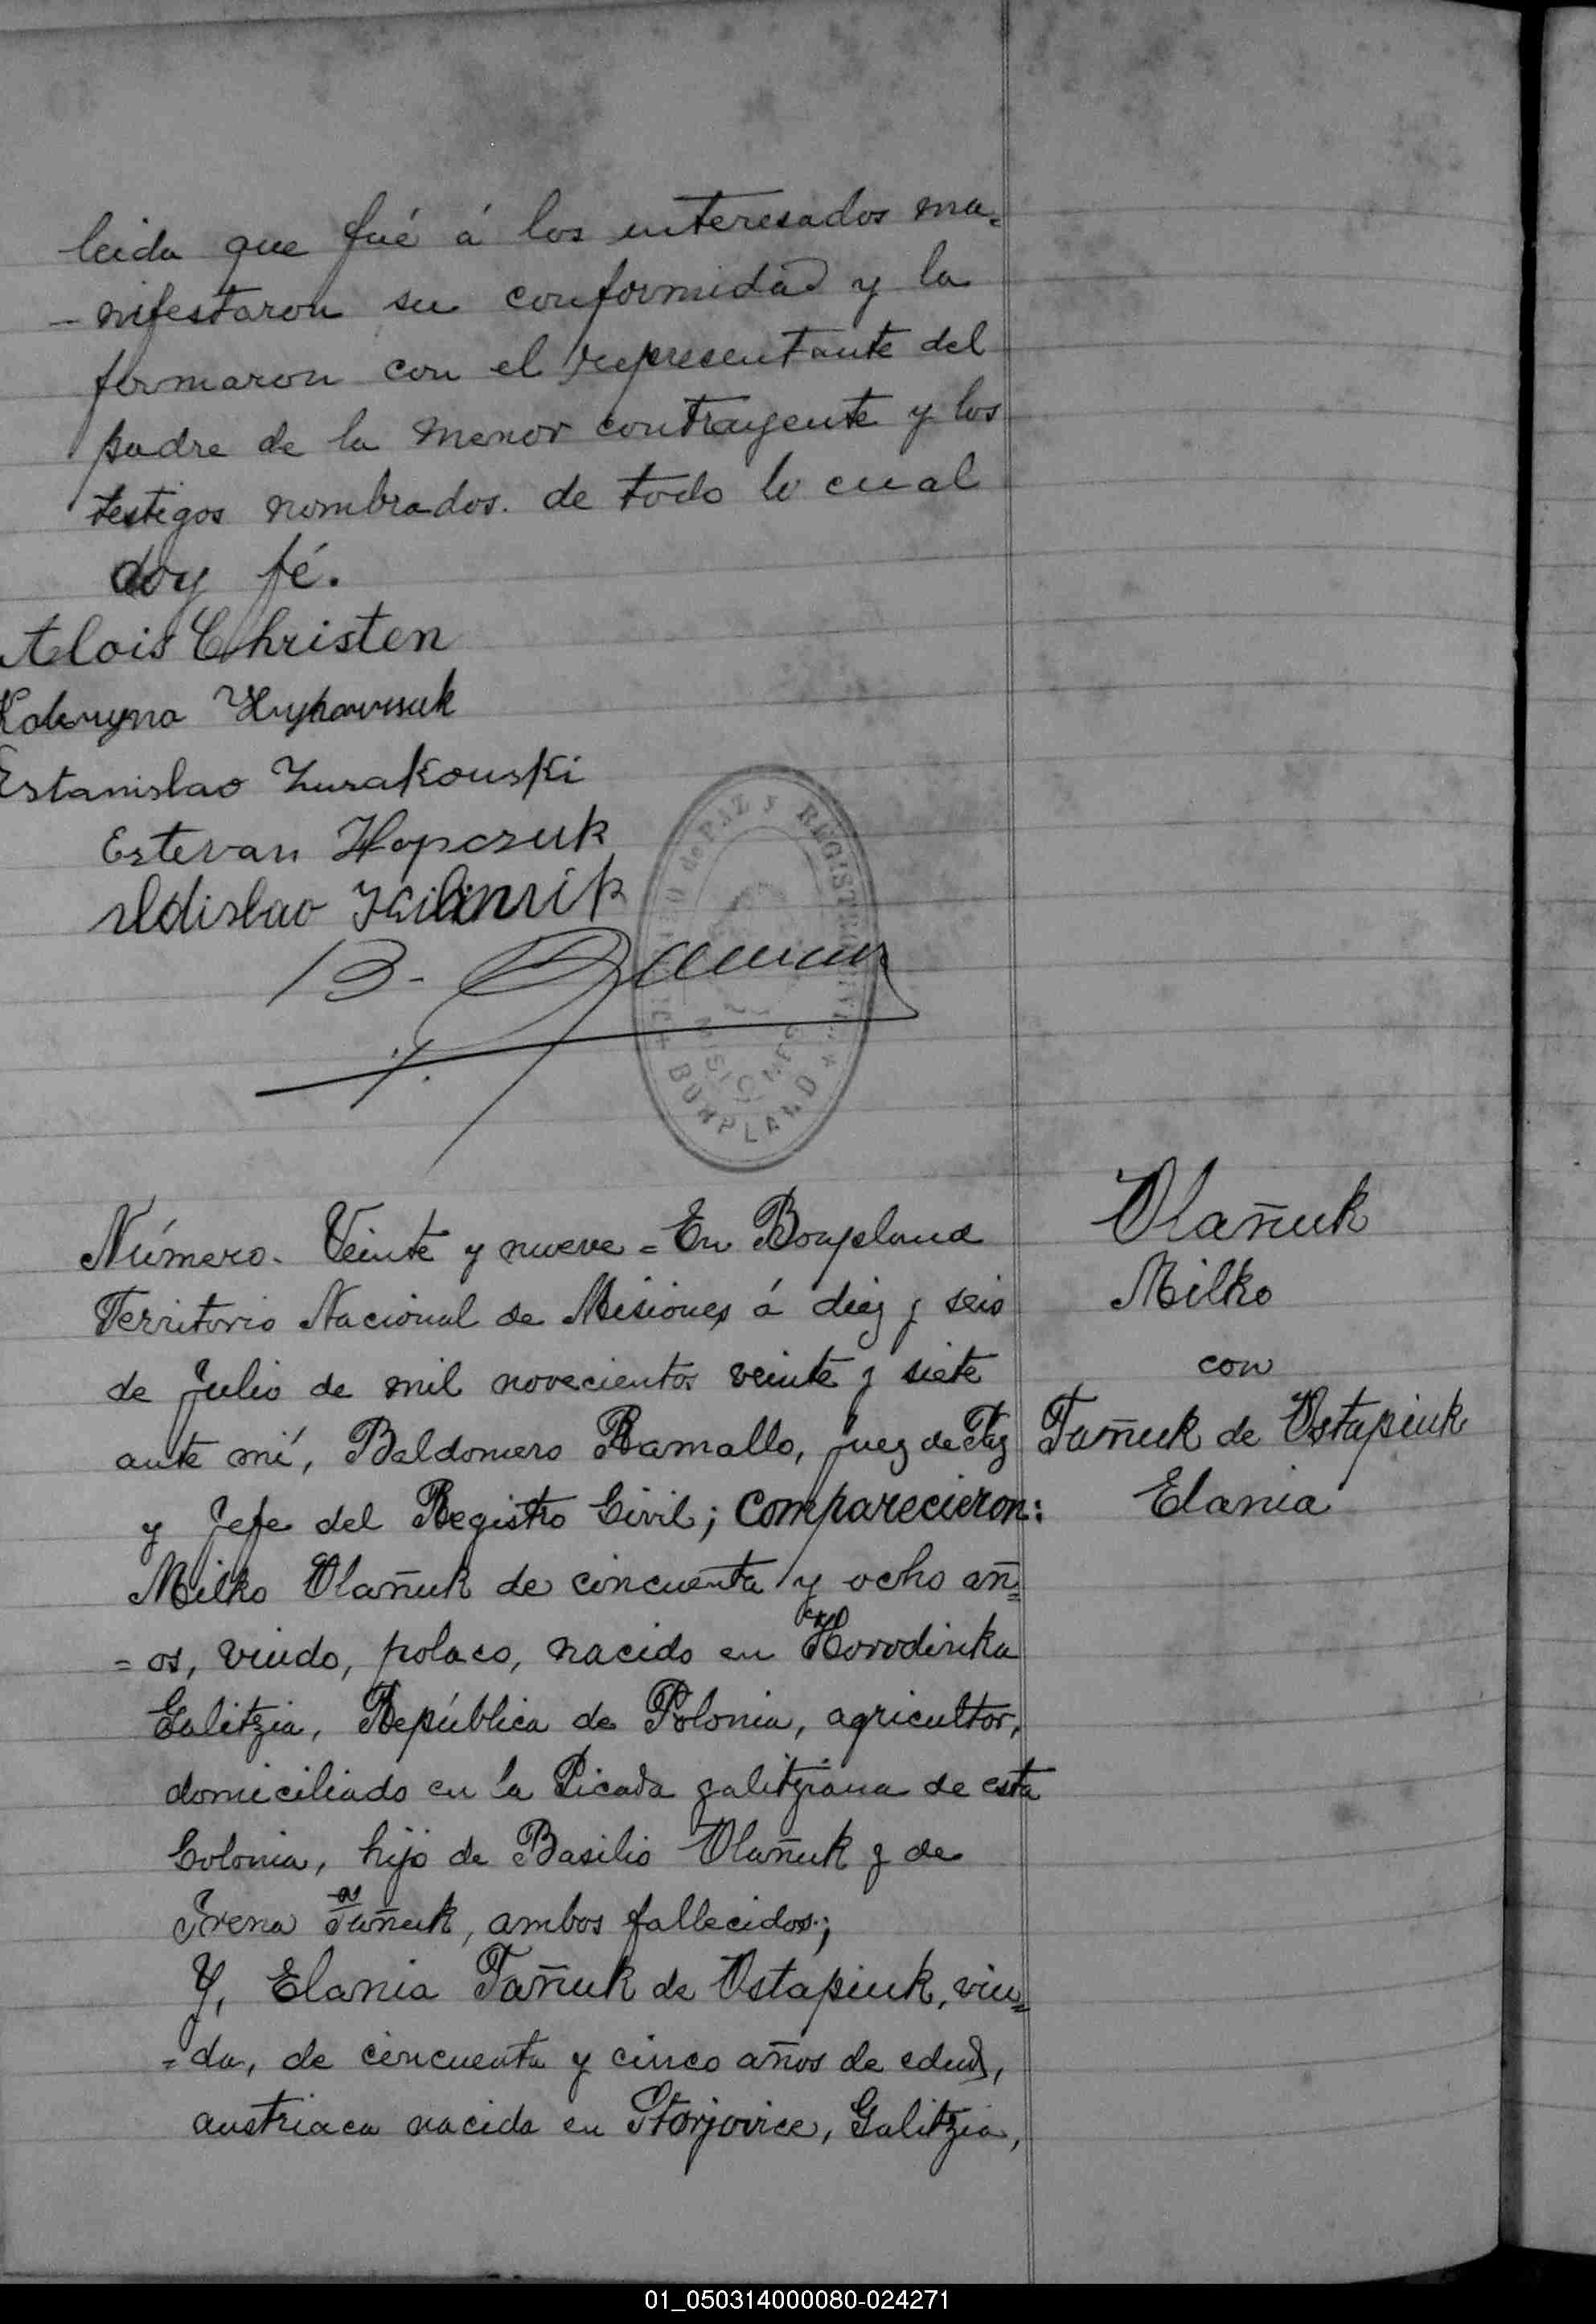 leida que fué á los interesados ma=
-nifestaron su conformidad y la
firmaron con el representante del
padre de la menor contrayente y los
testigos nombrados. de todo lo cual
doy fé.
Alois Christen
Kateryna
Estanislao Zurakouski
Estevan Hopczuk
B.
PAZ Y REGISTRO
MISIONES
BONPLAND
Número. Veinte y nueve = En Bonpland
Territorio Nacional de Misiones á diez y seis
de Julio de mil novecientos veinte y siete
ante mí, Baldomero Ramallo, juez de Paz
y Jefe del Registro Civil; comparecieron:
Milko Olañuk de cincuenta y ocho añ=
=os, viudo, polaco, nacido en Horodinka
Galitzia, República de Polonia, agricultor,
domiciliado en la Picada galitziana de esta
Colonia, hijo de Basilio Olañuk y de
Irena Tañuk, ambos fallecidos;
Y, Elania Tañuk de Ostapiuk, viu=
=da, de cincuenta y cinco años de edad,
austriaca nacida en Storjovice, Galitzia,
Olañuk
Milko
con
Tañuk de Ostapiuk
Elania
01_050314000080-024271